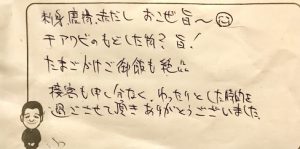 刺身 唐揚 赤だし おこぜ旨〜
干アワビのもどした物？旨！
たまごかけご御飯も絶品
接客も申し分なく、ゆったりとした時間を
過ごさせて頂きありがとうございました。